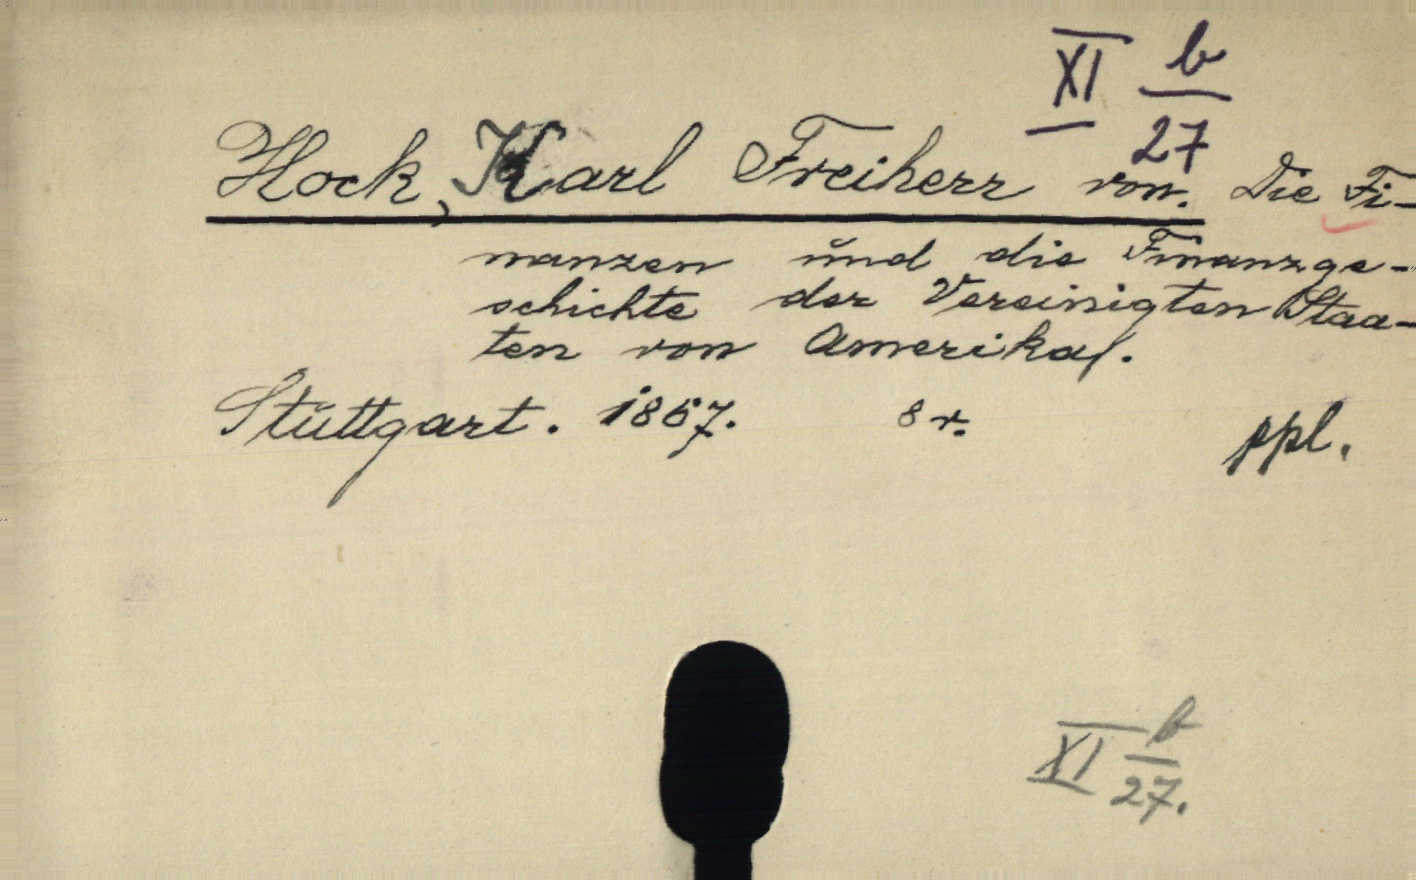 XI b/27
Hock, Karl Freiherr von. Die Fi-
nanzen und die Finanzge-
schichte der Vereinigten Staa-
ten von Amerika.
Stuttgart. 1867. 8 r. ppl.
XI b/27.